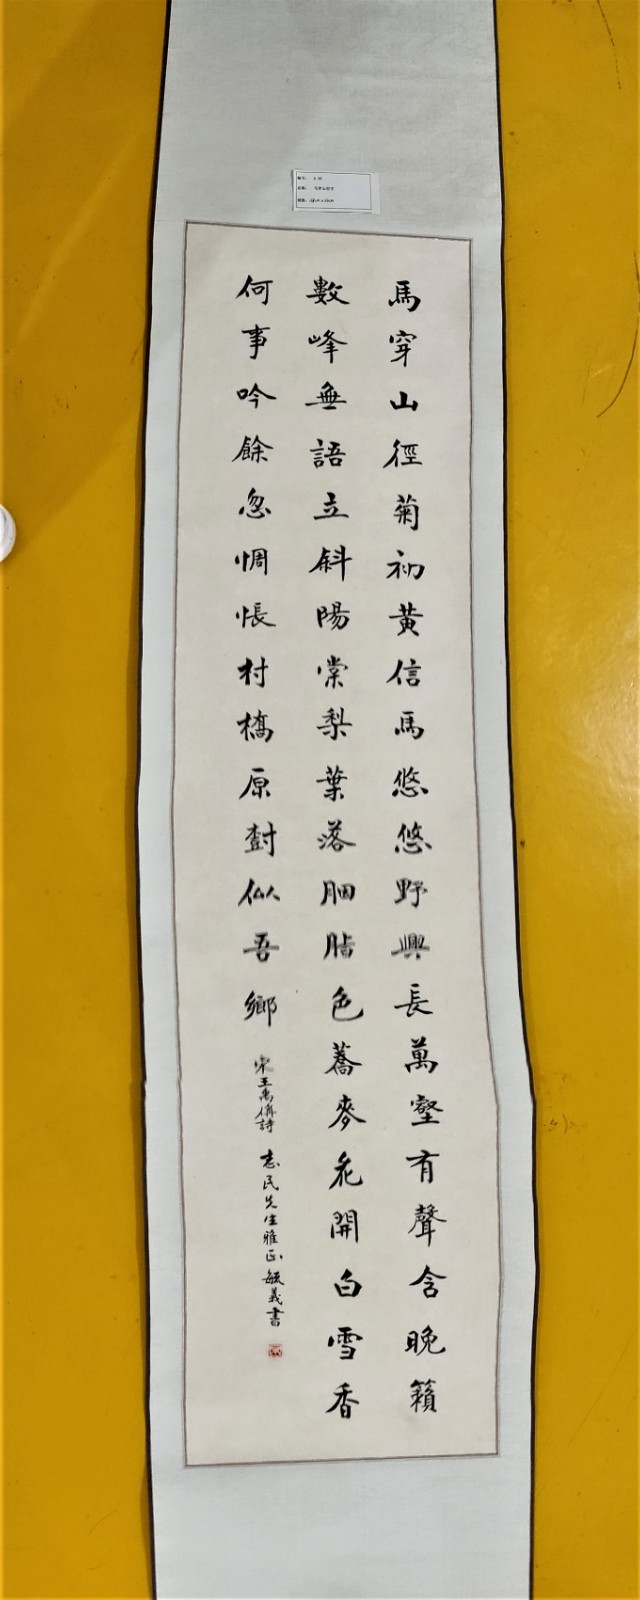 馬穿山徑菊初黃信馬悠悠野興長萬壑有聲含晚籟
數峰無語立斜陽棠梨葉落胭脂色蕎麥花開白雪香
何事吟餘忽惆悵村橋原樹似吾鄉
宋王禹偁詩 志民先生雅正 毓義書